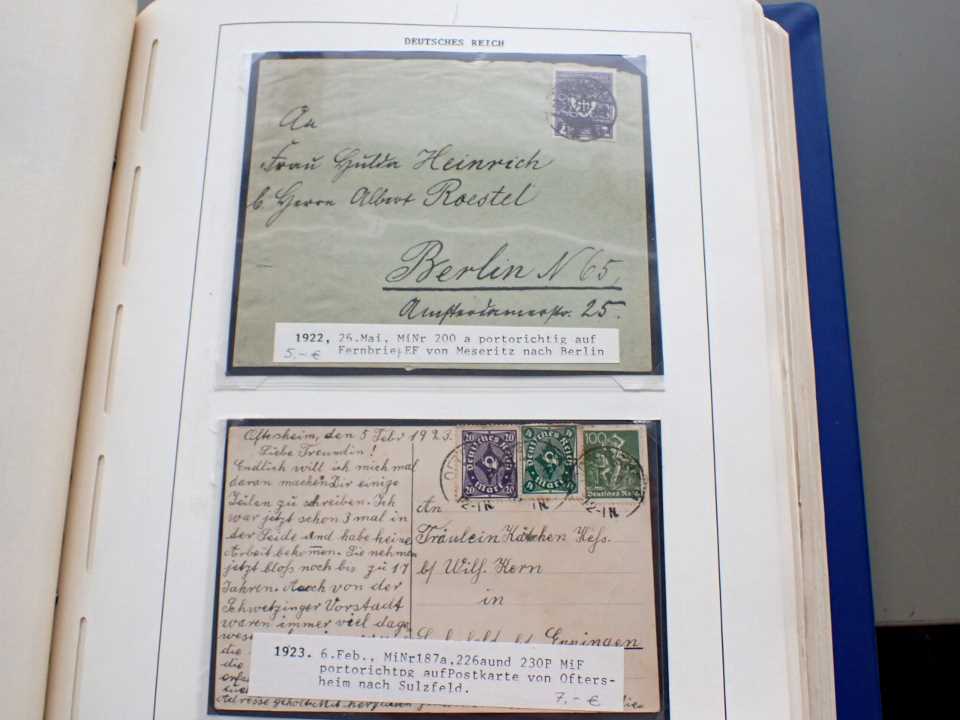 DEUTSCHES REICH
An
Frau Hulda Heinrich
b. Herrn Albert Roestel
Berlin N 65,
Amsterdamerstr. 25.
1922, 26.Mai, MiNr 200 a portorichtig auf
Fernbrief,EF von Meseritz nach Berlin
5,- €
Oftersheim, den 5 Febr 1923.
Liebe Freundin!
Endlich will ich mich mal
daran machen Dir einige
Zeilen zu schreiben. Ich
war jetzt schon 3 mal in
der Seide und habe keine
Arbeit bekommen. Sie nehmen
jetzt bloß noch bis zu 17
Jahren. Auch von der
Schwetzinger Vorstadt
waren immer viel dage
wes
die
die
erfa
Adresse geholt. Mit
20 20
Deutsches Reich
20 Mark 20
Deutsches Reich
4 Mark 4
100
Deutsches Reich
12-1N
An
Fräulein Kätchen Heß.
b/ Wilh. Kern
in
Eppingen
1923. 6.Feb., MiNr187a,226aund 230P MiF
portorichtpg aufPostkarte von Ofters-
heim nach Sulzfeld.
7,- €